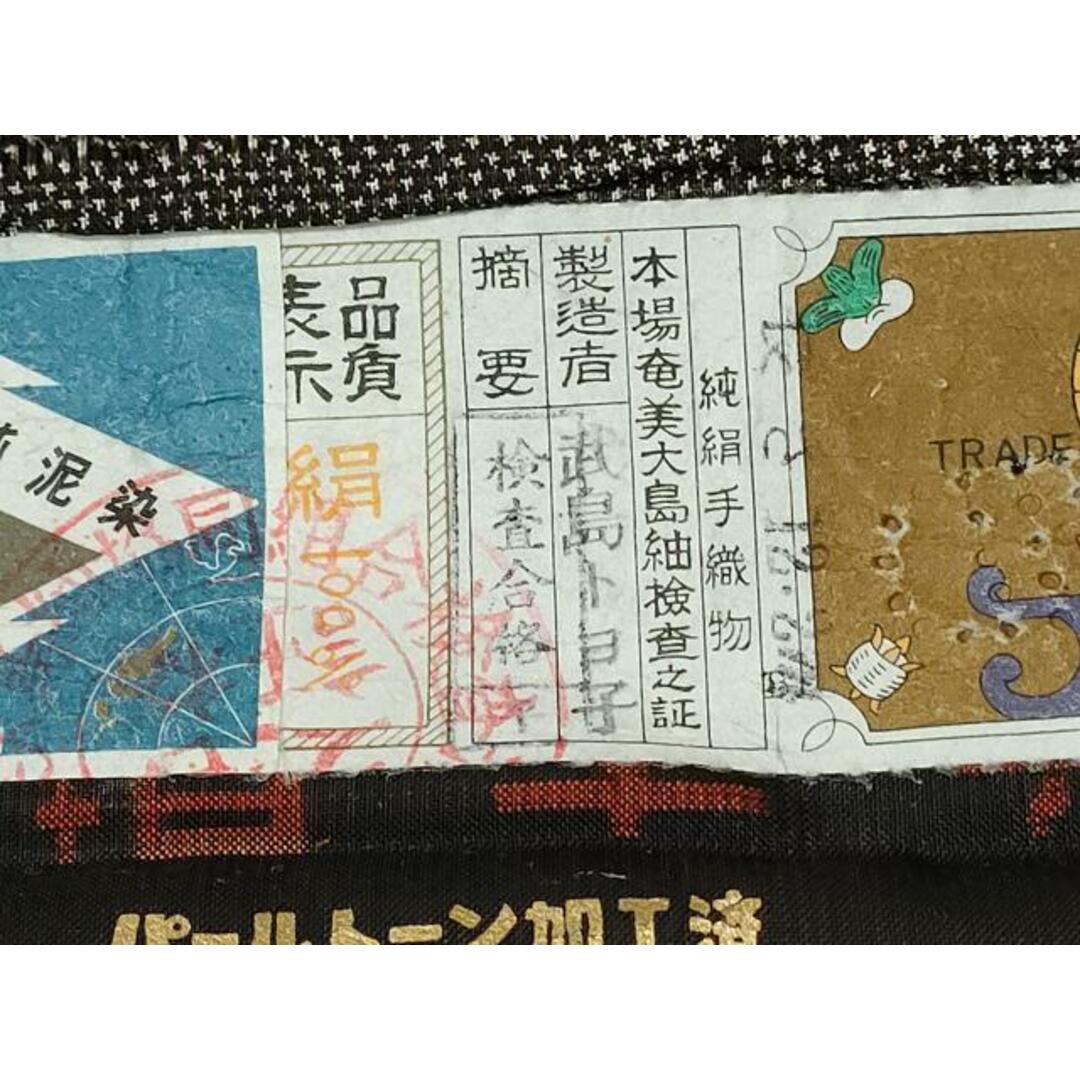 泥染
品質
表示
絹
100%
純絹手織物
本場奄美大島紬検査之証
製造者
武島トヨ子
摘要
検査合格
TRADE
パールトーン加工済